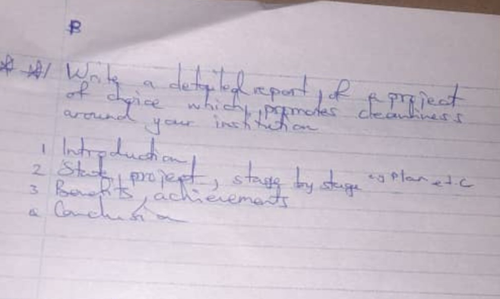 B
Write a detailed report, of a project
of choice which promotes cleanliness
around your institution
1 Introduction
2 State project, stage by stage eg plan etc
3 Benefits, achievements
Conclusion